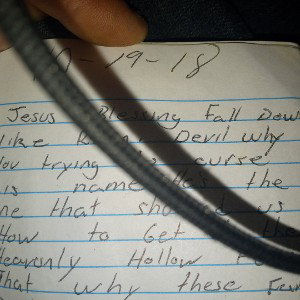 10-19-18
Jesus Blessing Fall Dow
like Devil why
you trying curse
is name He's the
ne that showed us
How to Get the
Heavenly Hollow
That why these